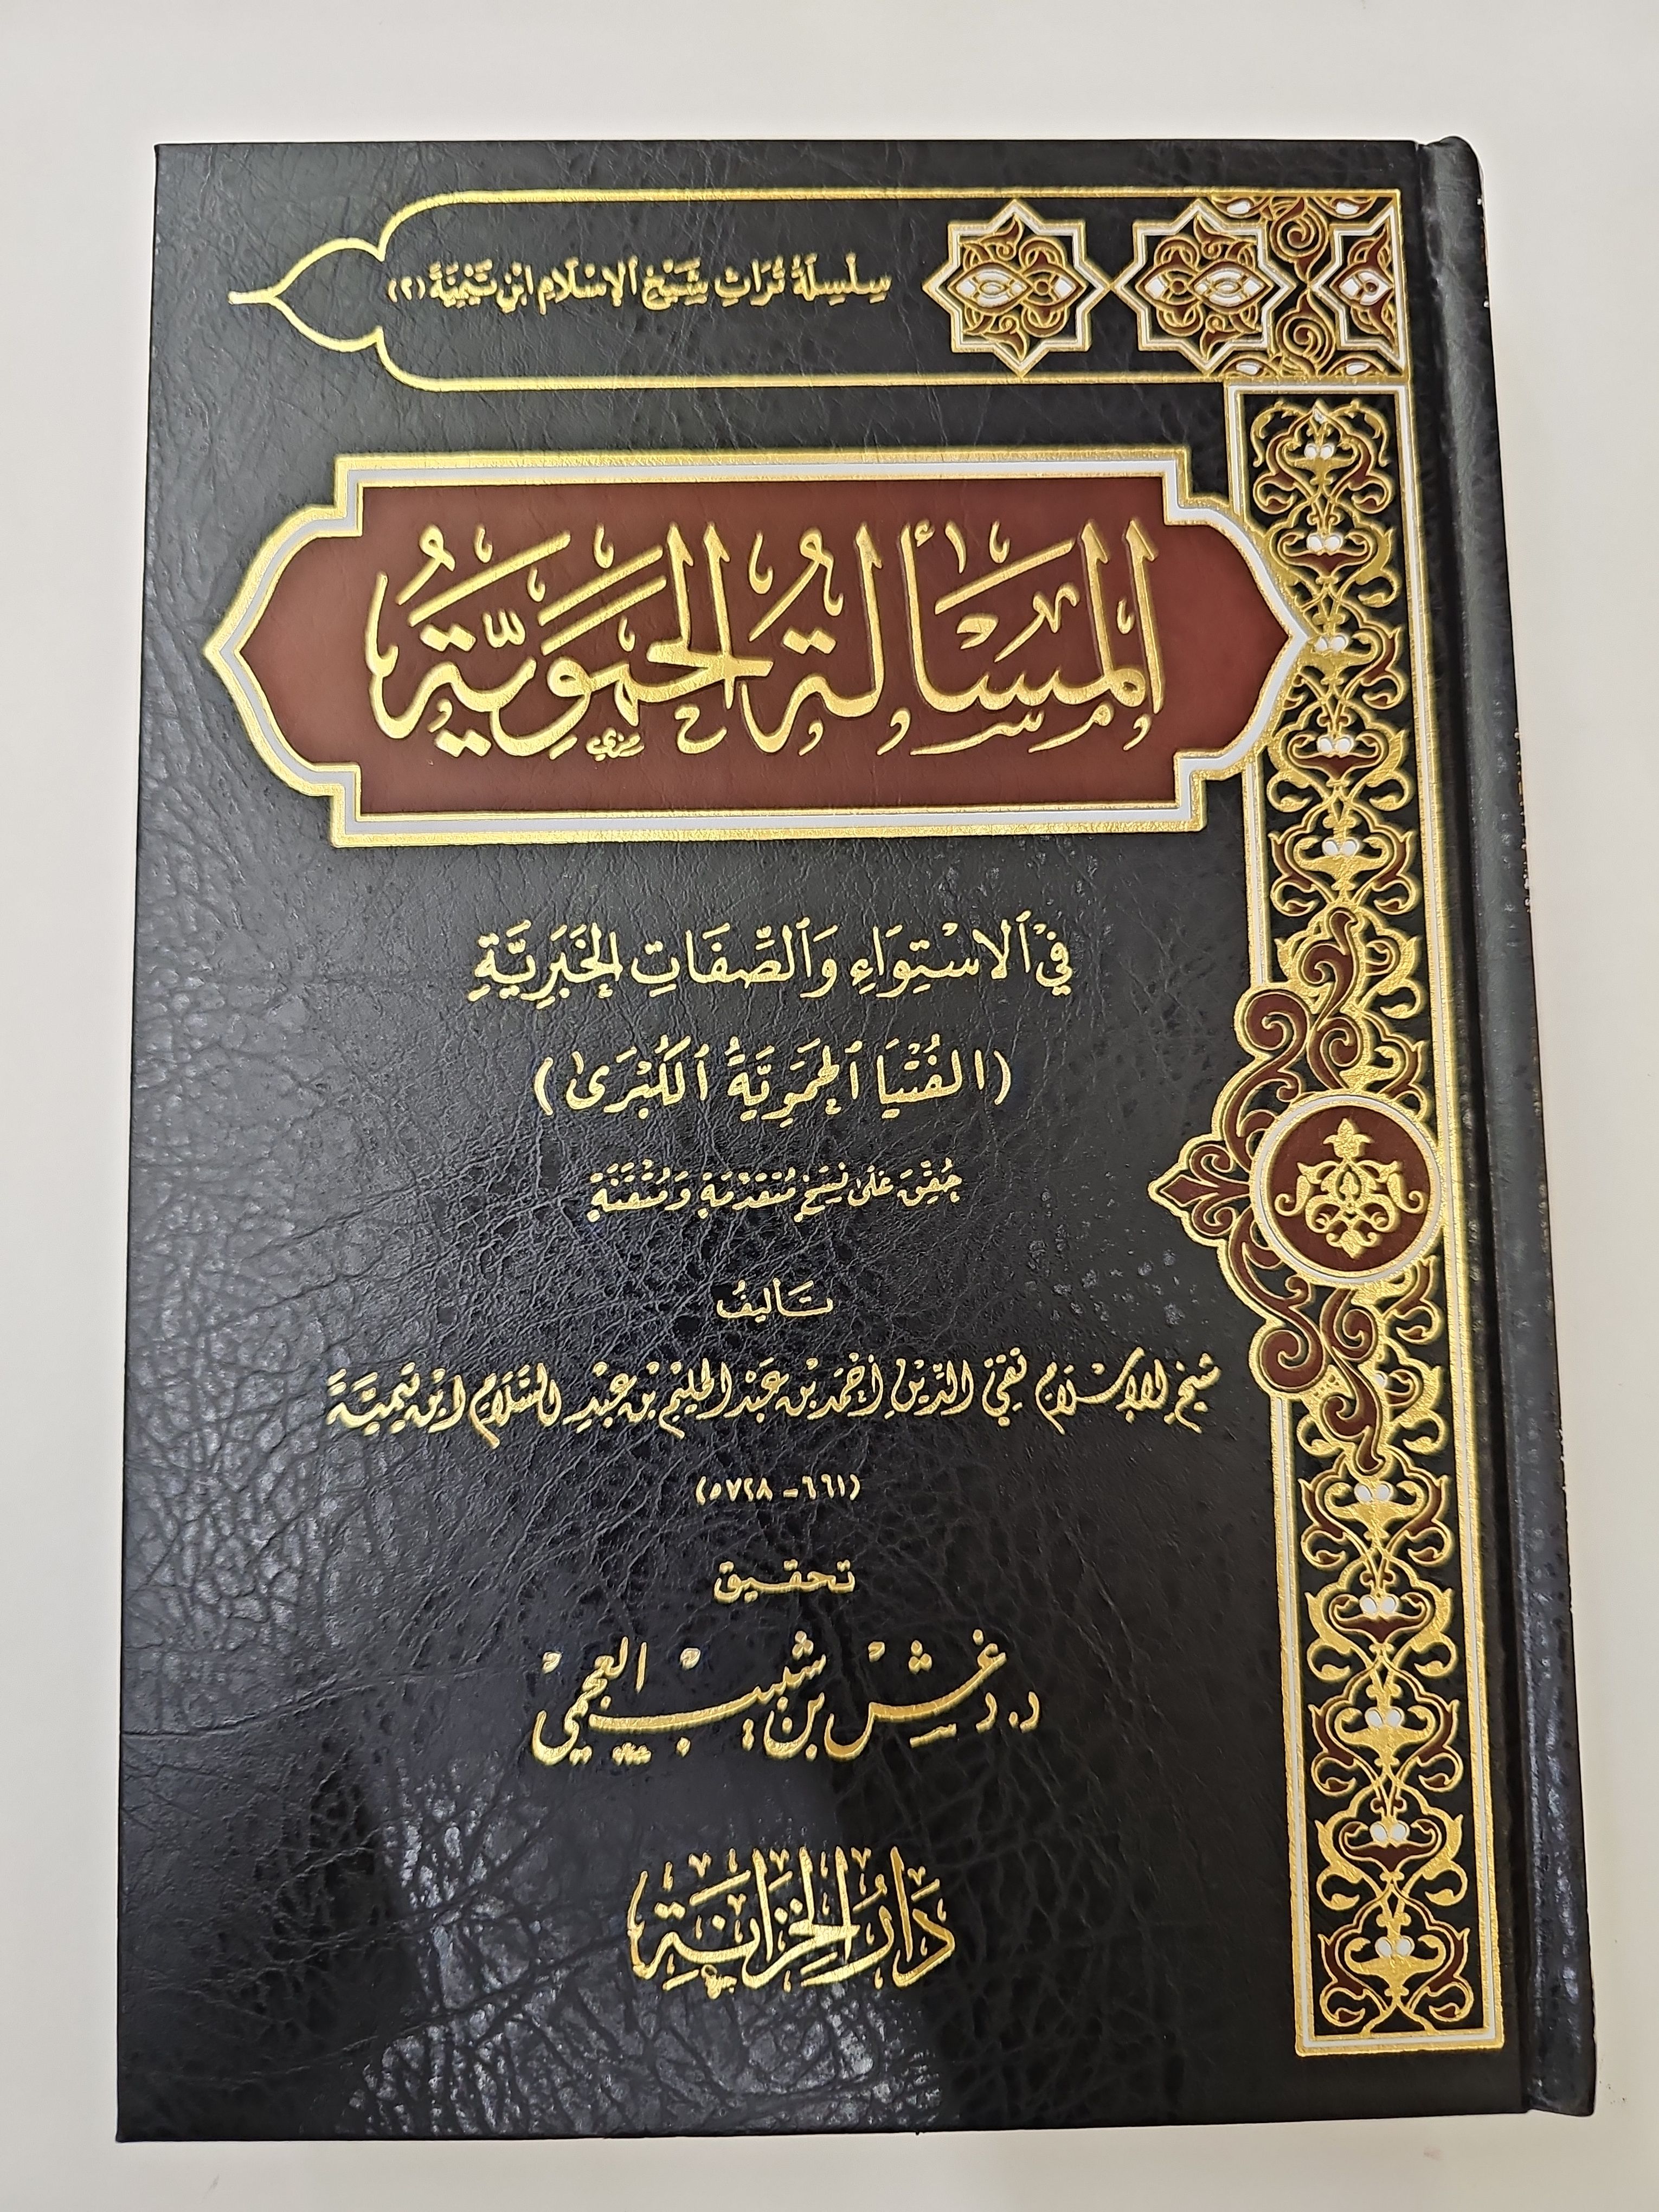 سِلْسِلَةُ تُرَاثِ شَيْخِ الإِسْلَامِ ابْنِ تَيْمِيَّةَ (٢)
المَسْأَلَةُ الحَمَوِيَّةُ
فِي الاسْتِوَاءِ وَالصِّفَاتِ الخَبَرِيَّةِ
(الفُتْيَا الحَمَوِيَّةُ الكُبْرَىٰ)
حُقِّقَ عَلَىٰ نُسَخٍ مُتَقَدِّمَةٍ وَمُتْقَنَةٍ
تَأْلِيفُ
شَيْخِ الإِسْلَامِ تَقِيِّ الدِّيْنِ أَحْمَدَ بْنِ عَبْدِ الحَلِيْمِ بْنِ عَبْدِ السَّلَامِ ابْنِ تَيْمِيَّةَ
(٦٦١ - ٧٢٨هـ)
تحقيق
د. دغش بن شبيب العجمي
دَارُ الخِزَانَةِ